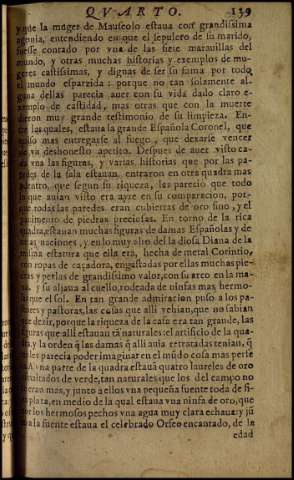 QVARTO. 139
y que la muger de Mauseolo estaua con grandissima
agonia, entendiendo en que el sepulcro de su marido,
fuesse contado por vna de las siete marauillas del
mundo, y otras muchas historias y exemplos de mu-
geres castissimas, y dignas de ser su fama por todo
el mundo esparzida: porque no tan solamente al-
guna dellas parecia auer con su vida dado claro e-
xemplo de castidad, mas otras que con la muerte
dieron muy grande testimonio de su limpieza. En-
tre las quales, estaua la grande Española Coronel, que
quiso mas entregarse al fuego, que dexarse vencer
de vn deshonesto apetito. Despues de auer visto ca-
da vna las figuras, y varias historias que por las pa-
redes de la sala estauan, entraron en otra quadra mas
adentro, que segun su riqueza, les parecio que todo
lo que auian visto era ayre en su comparacion, por-
que todas las paredes eran cubiertas de oro fino, y el
pauimento de piedras preciosas. En torno de la rica
quadra, estauan muchas figuras de damas Españolas y de
otras naciones, y en lo muy alto del la diosa Diana de la
misma estatura que ella era, hecha de metal Corintio,
con ropas de caçadora, engastadas por ellas muchas pie-
dras y perlas de grandissimo valor, con su arco en la ma-
no, y su aljaua al cuello, rodeada de ninfas mas hermo-
sas que el sol. En tan grande admiracion puso a los pa-
stores y pastoras, las cosas que alli vehian, que no sabian
que dezir, porque la riqueza de la casa era tan grande, las
figuras que alli estauan tã naturales el artificio de la qua-
dra, y la orden q̃ las damas q̃ alli auia retratadas tenian, q̃
no les parecia poder imaginar en el mũdo cosa mas perfe
A vna parte de la quadra estauã quatro laureles de oro
esmaltados de verde, tan naturales que los del campo no
lo eran mas, y junto a ellos vna pequeña fuente toda de fi-
na plata, en medio de la qual estaua vna ninfa de oro, que
por los hermosos pechos vna agua muy clara echaua: y jũ
to a la fuente estaua el celebrado Orfeo encantado, de la
edad